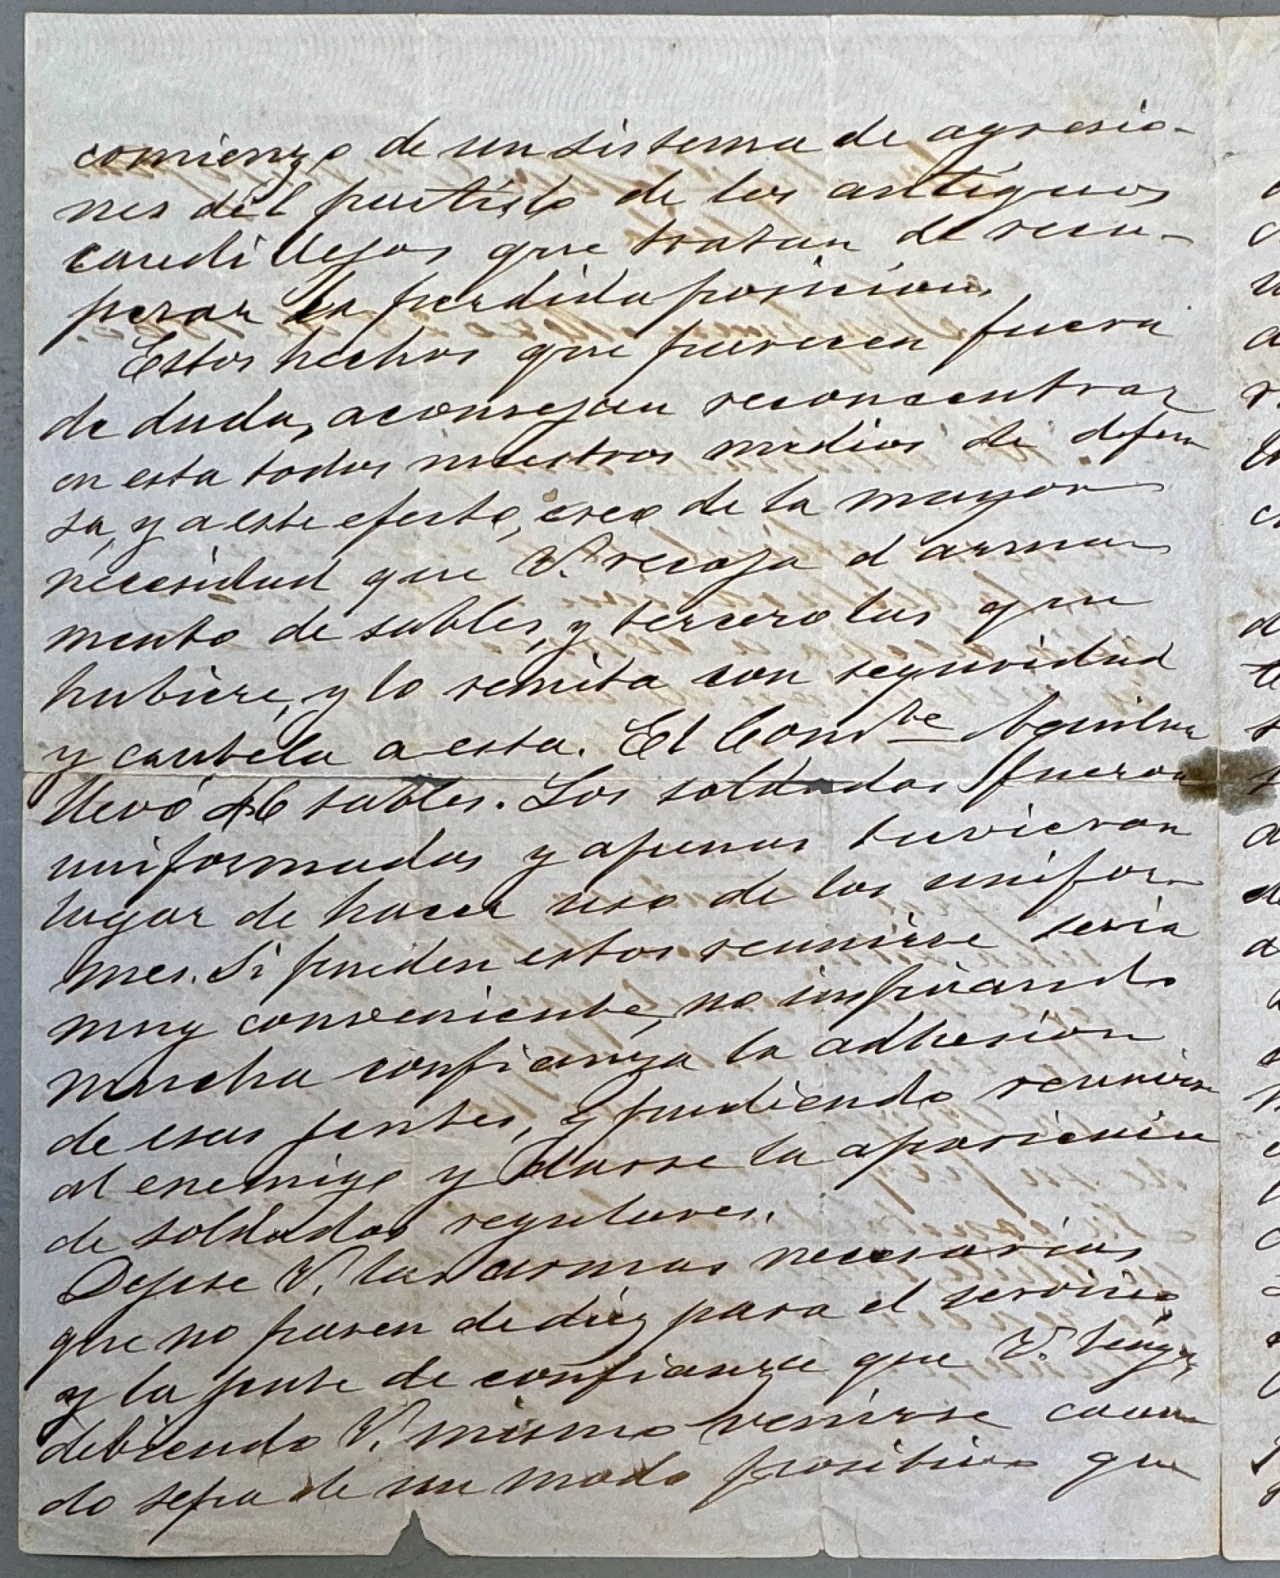 comienzo de un sistema de agresio-
nes del partido de los antiguos
caudillejos que tratan de recu-
perar la perdida posicion.
Estos hechos que parecen fuera
de duda, aconsejan reconcentrar
en esta todos nuestros medios de defen
sa, y a este efecto, creo de la mayor
necesidad que V. recoja el arma
mento de sables, y tercerolas que
hubiere, y lo remita con seguridad
y cautela a esta. El Comte Aguilar
llevó 46 sables. Los soldados fueron
uniformados y apenas tuvieron
lugar de hacer uso de los unifor-
mes. Si pueden estos reunirse seria
muy conveniente, no inspirando
mucha confianza la adhesion
de esas gentes, y pudiendo reunirse
al enemigo y darse la apariencia
de soldados regulares.
Dejese V. las armas necesarias
que no pasen de diez para el servicio,
y la gente de confianza que V. tenga,
debiendo V. mismo venirse cuan
do sepa de un modo positivo que